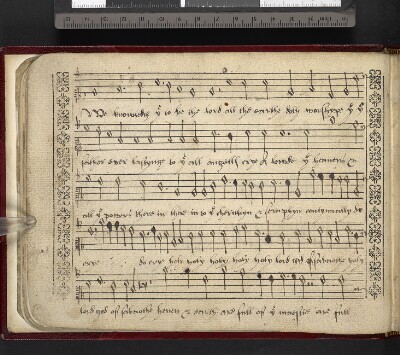 We knowledg yͤ to be the lord all the earthe doth worshyppe yͤ yͤ
father ever lastynge to yͤ all angells crye alowde yͤ heavens &
all yͤ powers there in thee in to yͤ cherubyn & seraphyn contynually do
crye do crye holy holy holy holy holy lord god of sabaothe holy
lord god of sabaothe heven & are full of yͤ are full